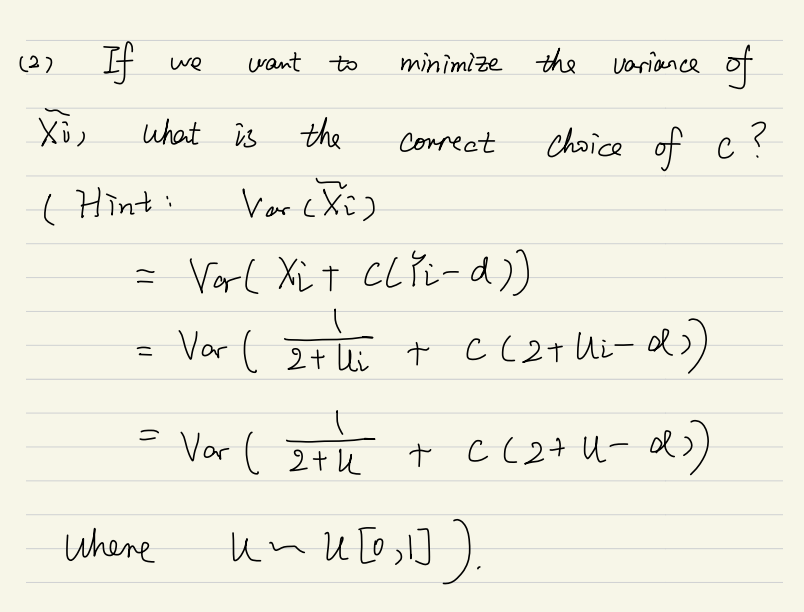 (2) If we want to minimize the variance of
X̃i, what is the correct choice of c?
(Hint: Var(X̃i)
= Var(Xi + C(Yi - α))
= Var( 1/(2+Ui) + C(2+Ui-α))
= Var( 1/(2+U) + C(2+U-α))
where U ~ U[0,1]).